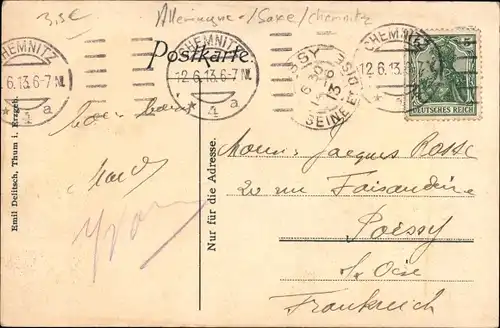 3,5€
Allemagne/Saxe/Chemnitz
Postkarte.
CHEMNITZ
12.6.13.6-7N.
* 4 a
CHEMNITZ
12.6.13.6-7N.
* 4 a
POISSY
SEINE ET OISE
CHEMNITZ
12.6.13
5 5
DEUTSCHES REICH
Emil Delitsch, Thum i. Erzgeb.
Nur für die Adresse.
Monsieur Jacques Rosse
20 rue Faisanderie
Poissy
s/ Oise
Frankreich